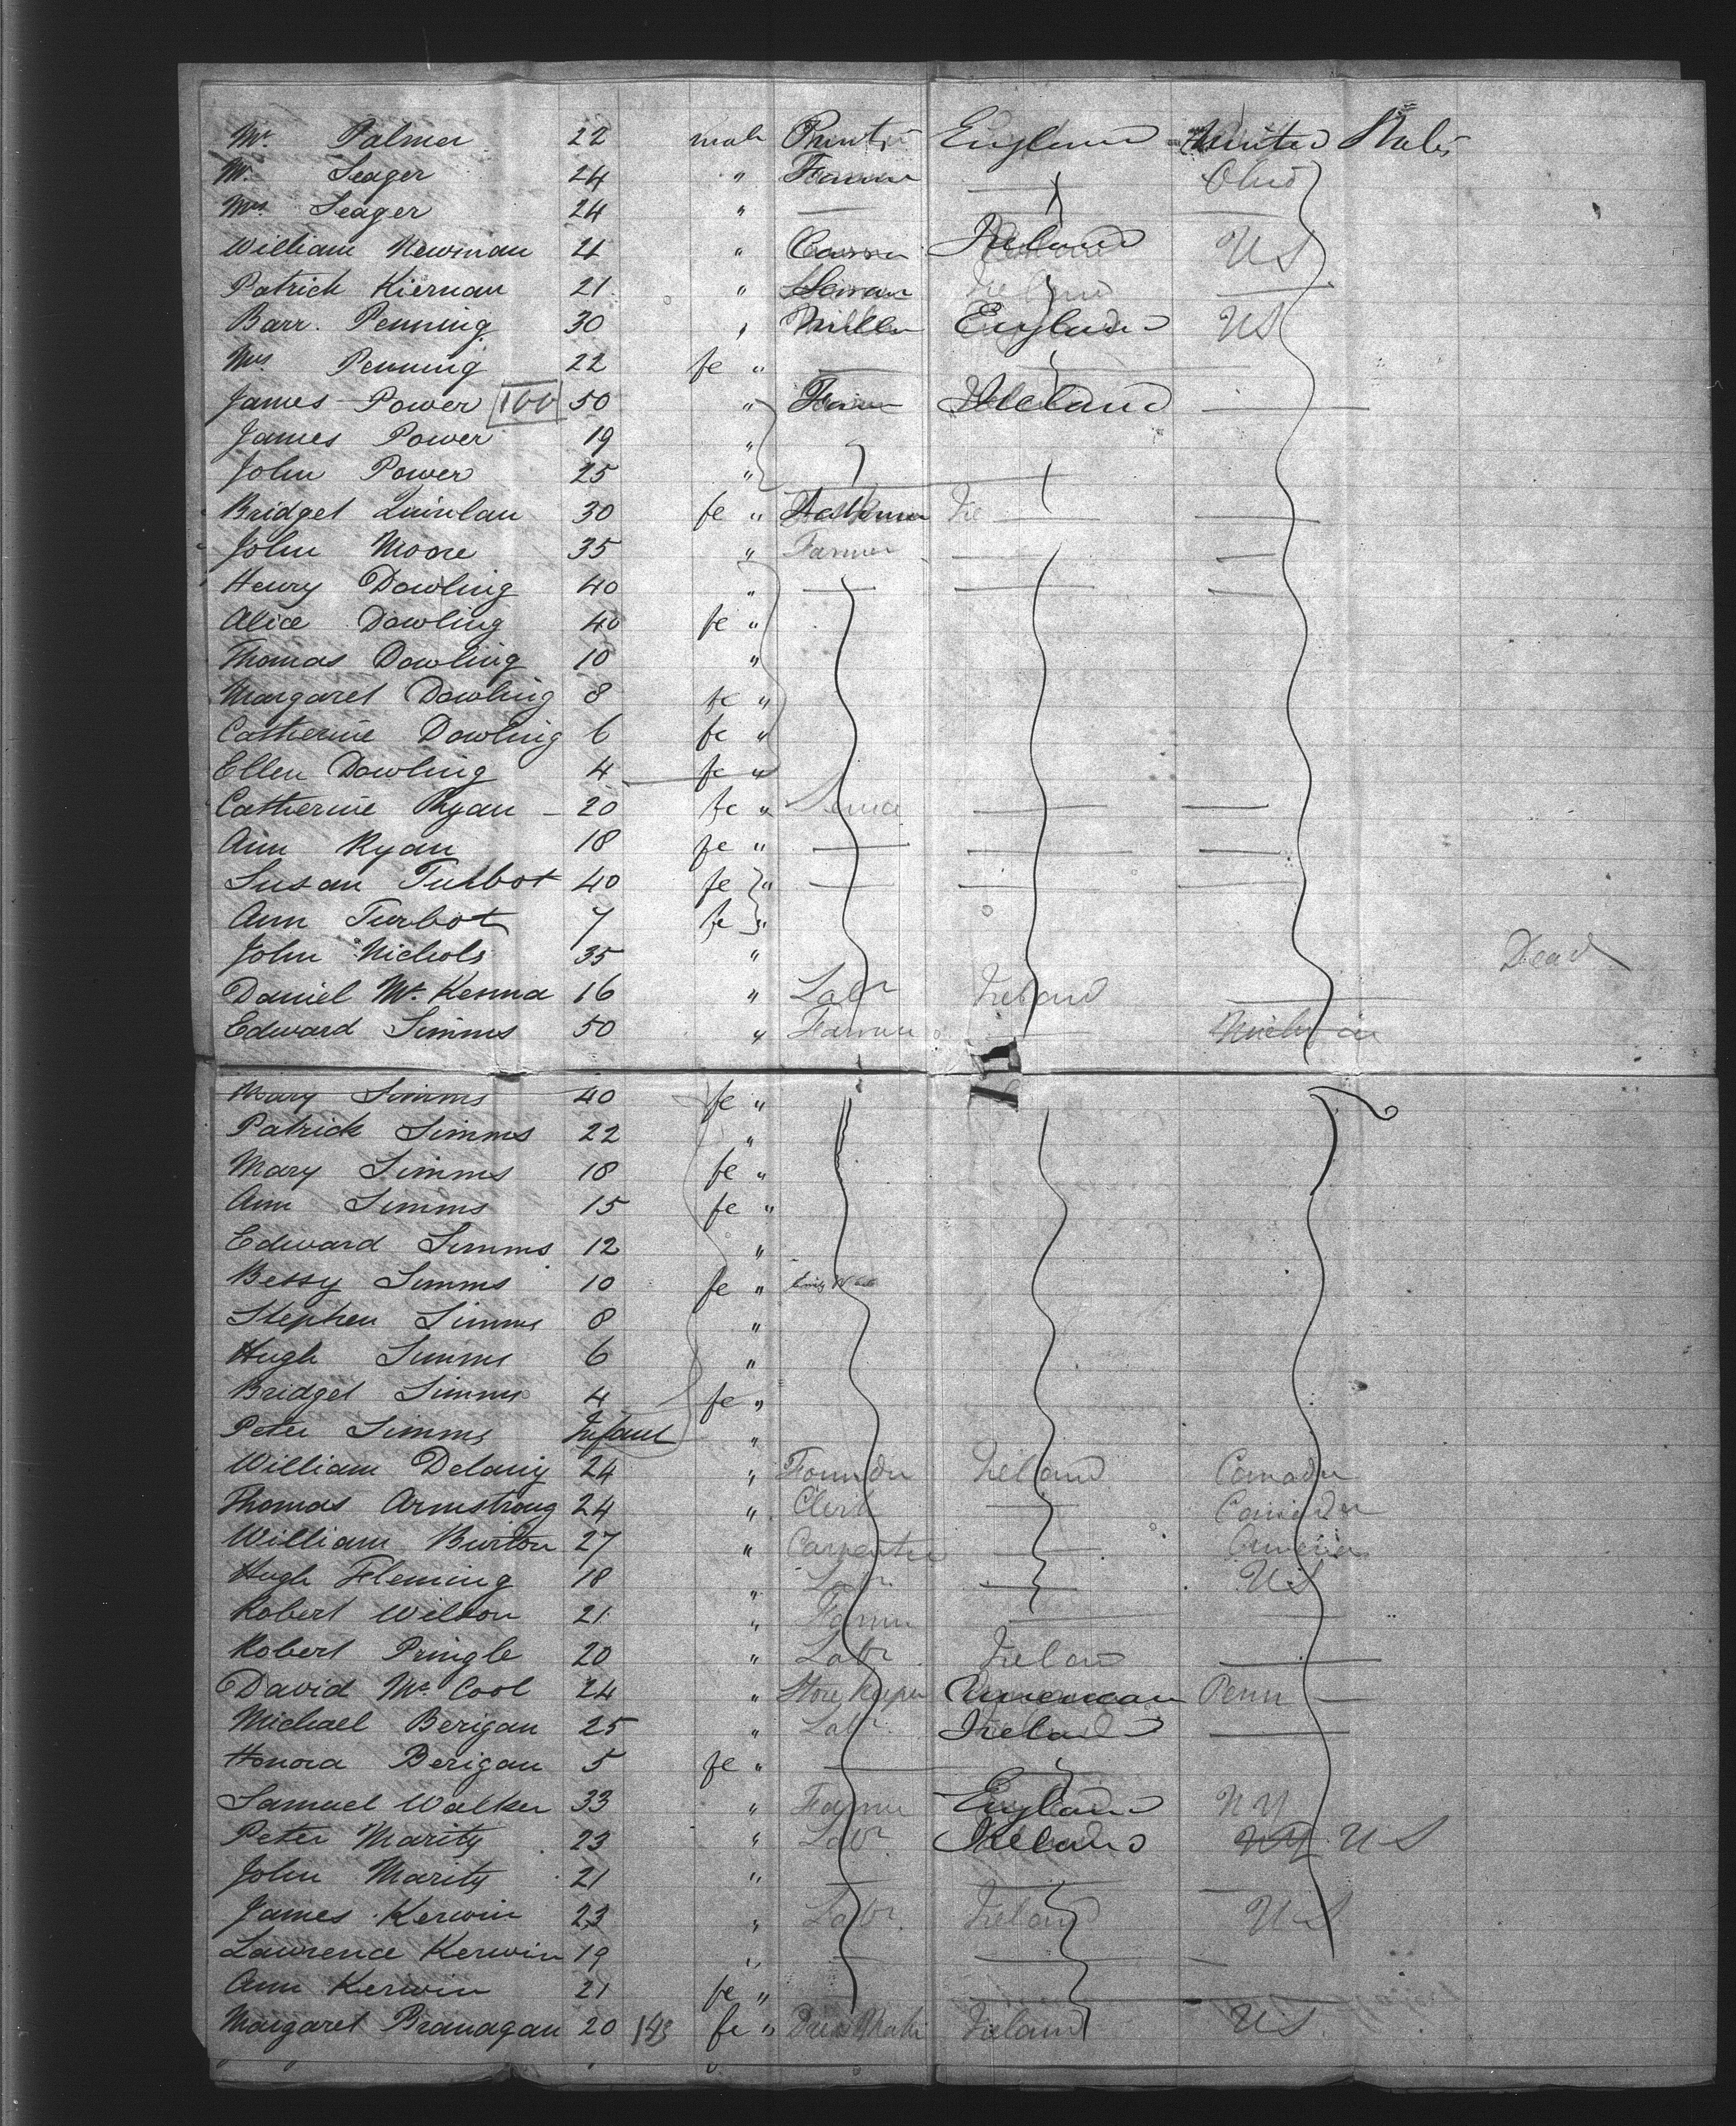 Mr. Palmer 22 male Printer England United States
Mr. Seager 24 " Farmer — Ohio
Mrs. Seager 24 " — —
William Newman 21 " Ireland US
Patrick Kiernan 21 " Ireland —
Barr. Penning 30 " Miller England US
Mrs. Penning 22 fe " — —
James Power 100 50 " Farmer Ireland —
James Power 19 "
John Power 25 "
Bridget Quinlan 30 fe " Ire —
John Moore 35 " Farmer — —
Henry Dowling 40 " — — —
Alice Dowling 40 fe "
Thomas Dowling 10 "
Margaret Dowling 8 fe "
Catherine Dowling 6 fe "
Ellen Dowling 4 fe "
Catherine Ryan – 20 fe " — —
Ann Ryan 18 fe " — — —
Susan Turbot 40 fe " — — —
Ann Turbot 7 fe "
John Nichols 35 " Dead
Daniel Mc. Kenna 16 " Labr Ireland —
Edward Simms 50 " Farmer — Michigan
Mary Simms 40 fe "
Patrick Simms 22 "
Mary Simms 18 fe "
Ann Simms 15 fe "
Edward Simms 12 "
Bessy Simms 10 fe "
Stephen Simms 8 "
Hugh Simms 6 "
Bridget Simms 4 fe "
Peter Simms Infant "
William Delany 24 " Founder Ireland Canada
Thomas Armstrong 24 " Clerk — Canada
William Burton 27 " Carpenter — America
Hugh Fleming 18 " Labr. — US
Robert Wilson 21 " Farmer — —
Robert Pringle 20 " Labr. Ireland —
David Mc. Cool 24 " Store Keeper American Penn —
Michael Berigan 25 " Labr. Ireland —
Honora Berigan 5 fe " —
Samuel Walker 33 " Farmer England NY
Peter Marity 23 " Labr Ireland NY US
John Marity 21 " — —
James Kerwin 23 " Labr. Ireland US
Lawrence Kerwin 19 " — — —
Ann Kerwin 21 fe " — —
Margaret Branagan 20 148 fe " Dress Maker Ireland US